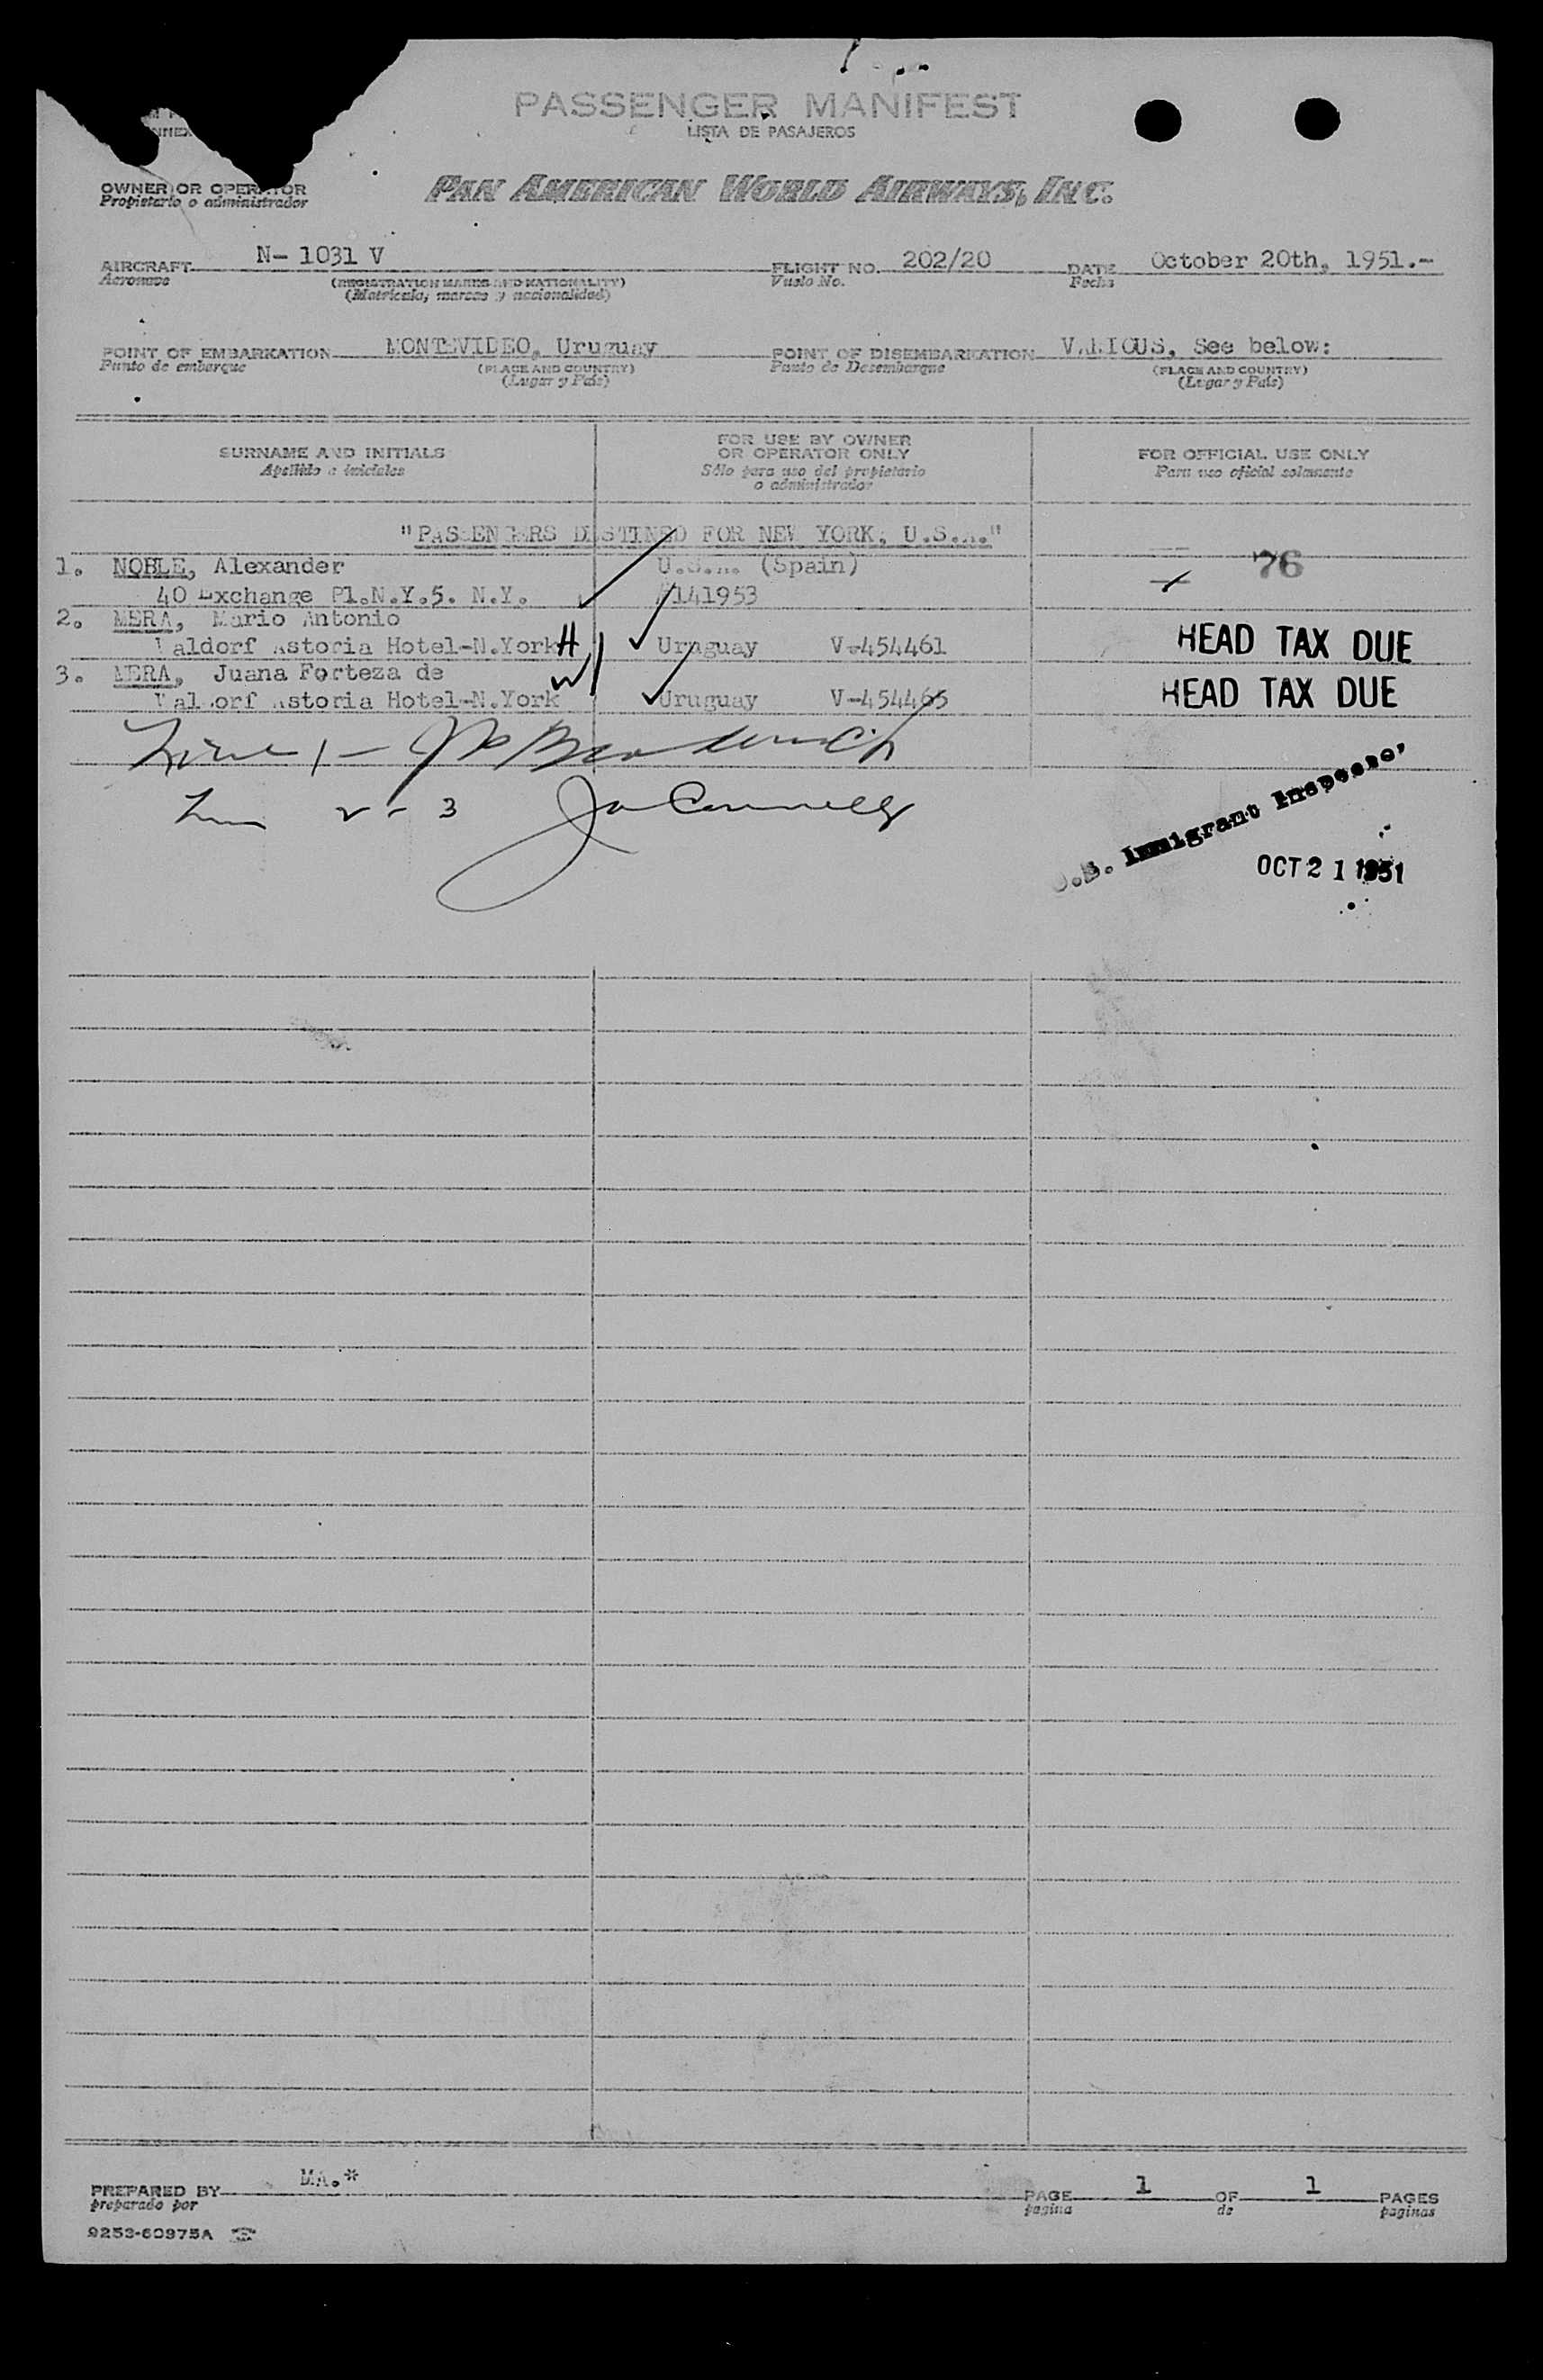 PASSENGER MANIFEST
LISTA DE PASAJEROS
OWNER OR OPERATOR
Propietario o administrador
PAN AMERICAN WORLD AIRWAYS, INC.
AIRCRAFT N- 1031 V FLIGHT NO. 202/20 DATE October 20th, 1951.-
Aeronave (REGISTRATION MARKS AND NATIONALITY) Vuelo No. Fecha
(Matrícula, marcas y nacionalidad)
POINT OF EMBARKATION MONTEVIDEO, Uruguay POINT OF DISEMBARKATION VARIOUS, See below:
Punto de embarque (PLACE AND COUNTRY) Punto de Desembarque (PLACE AND COUNTRY)
(Lugar y País) (Lugar y País)
SURNAME AND INITIALS FOR USE BY OWNER OR OPERATOR ONLY FOR OFFICIAL USE ONLY
Apellido e iniciales Sólo para uso del propietario o administrador Para uso oficial solamente
"PASSENGERS DESTINED FOR NEW YORK, U.S.A."
1. NOBLE, Alexander U.S.A. (Spain) 76
40 Exchange Pl.N.Y.5. N.Y. #141953
2. MERA, Mario Antonio
Waldorf Astoria Hotel-N.York H Uruguay V-454461 HEAD TAX DUE
3. MERA, Juana Forteza de
Waldorf Astoria Hotel-N.York W Uruguay V-454465 HEAD TAX DUE
Line 1 -
2 - 3 Connelly
U.S. Immigrant Inspector
OCT 21 1951
PREPARED BY MA.* PAGE 1 OF 1 PAGES
preparado por pagina de paginas
9253-60975A